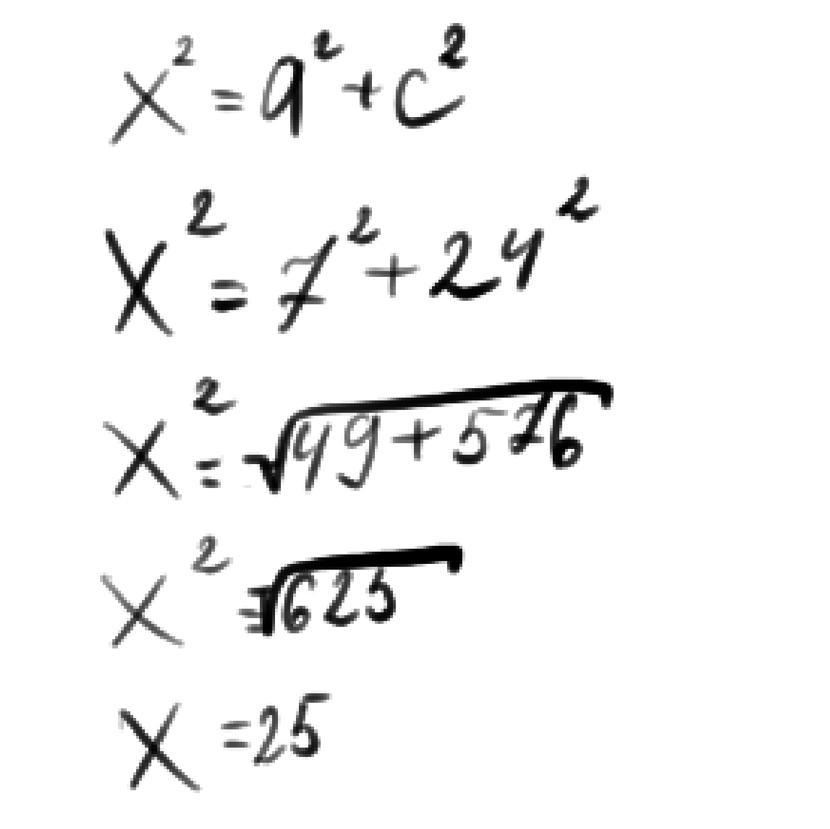 x² = a² + c²
x² = 7² + 24²
x² = √(49 + 576)
x² = √625
x = 25